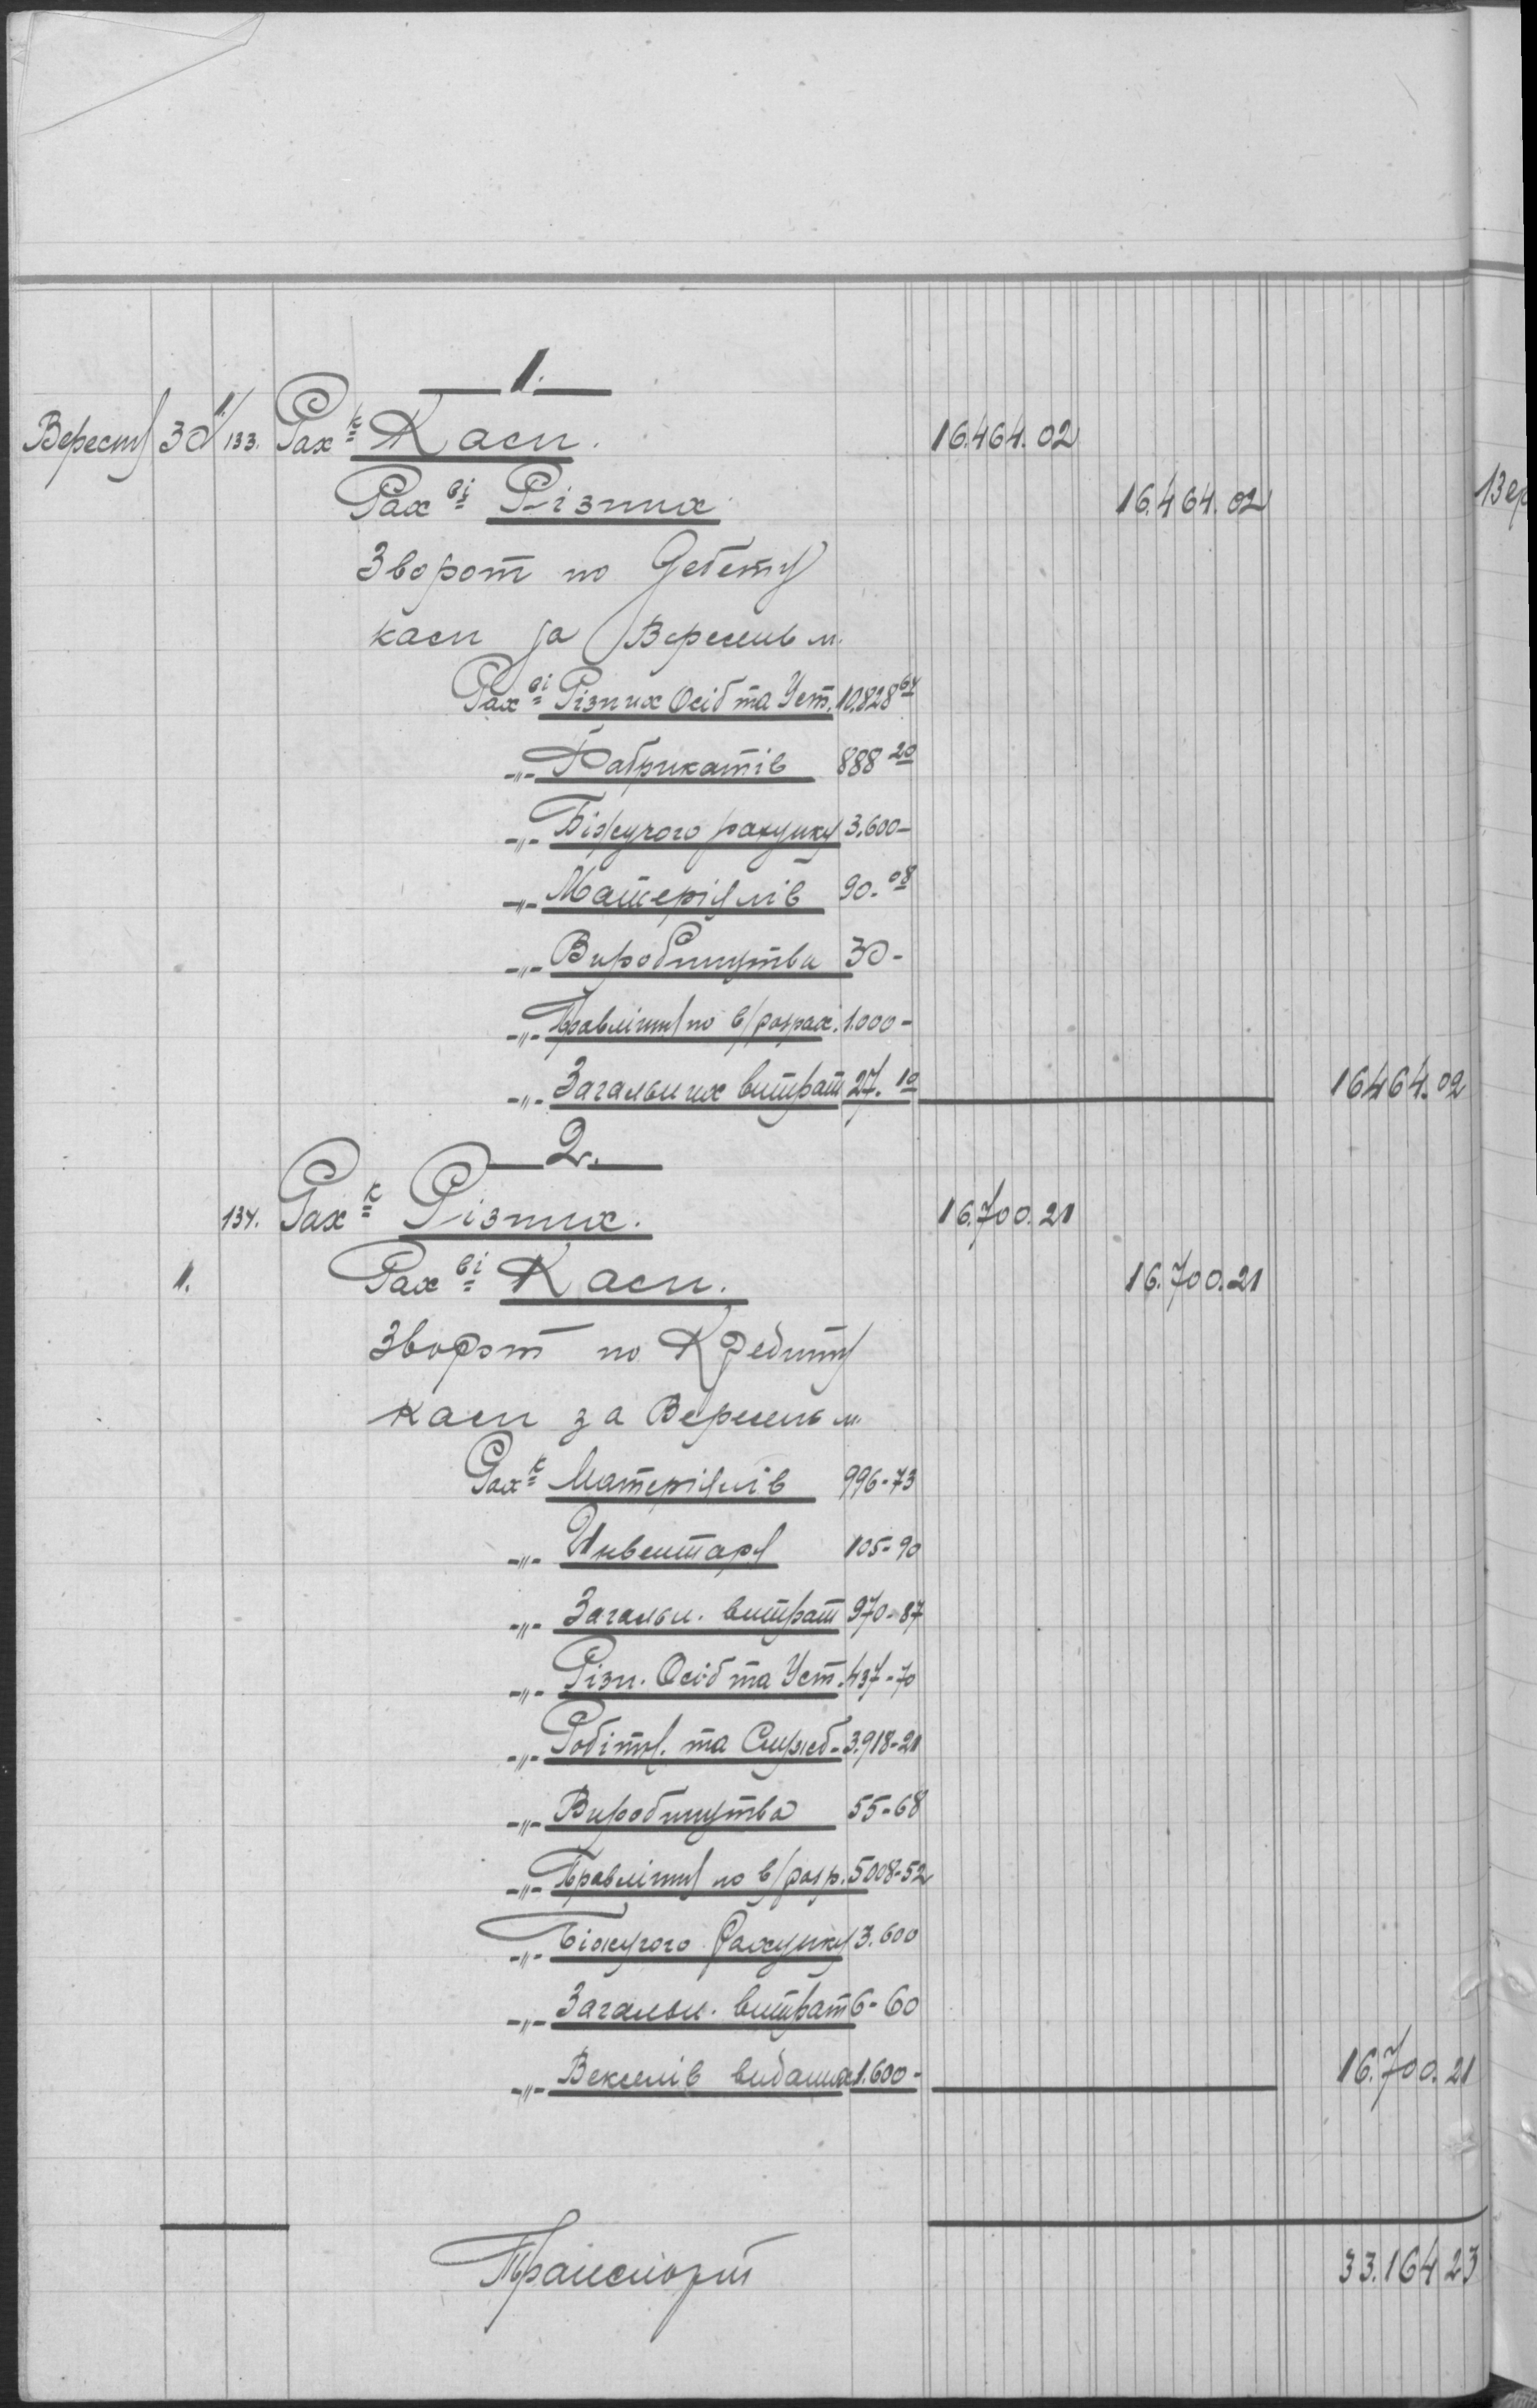 1.
Вересня 30 1/133. Рах-к Каси. 16.464.02
Рах-ві Різних 16.464.02
Зворот по Дебету
каси за Вересень м.
Рах-ві Різних Осіб та Уст. 10.828 64
-"- Фабрикатів 888 20
-"- Біжучого рахунку 3.600-
-"- Матеріялів 90.08
-"- Виробництва 30-
-"- Правління по в/розрах. 1.000-
-"- Загальних витрат 27.10 16464.02
2.
134. Рах-к Різних. 16.700.21
1. Рах-ві Каси. 16.700.21
Зворот по Кредиту
каси за Вересень м.
Рах-к Матеріялів 996-73
-"- Инвентаря 105-90
-"- Загальн. витрат 970-87
-"- Різн. Осіб та Уст. 437-70
-"- Робітн. та Служб- 3.918-21
-"- Виробництва 55-68
-"- Правління по в/розр. 5008-52
-"- Біжучого Рахунку 3.600
-"- Загальн. витрат 6-60
-"- Векселів виданих 1.600- 16.700.21
Транспорт 33.164 23